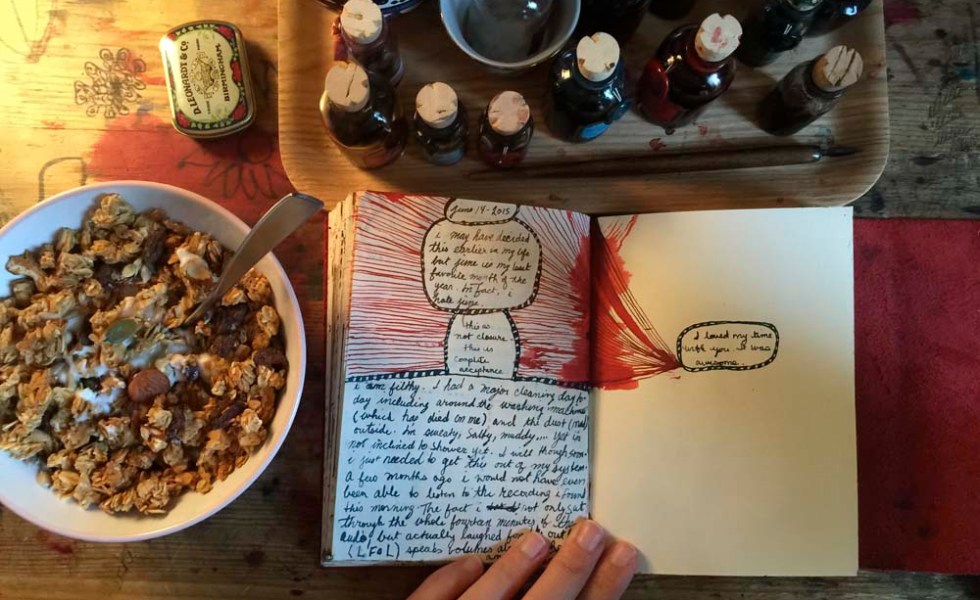 D. LEONARDT & CO.
BIRMINGHAM
June 14 - 2015
i may have decided
this earlier in my life
but june is my least
favorite month of the
year. In fact, i
hate june.
this is
not closure
this is
complete
acceptance
I loved my time
with you. it was
awesome
i am filthy. I had a major cleaning day to
day including around the washing machine
(which has died on me) and the dust
outside. I'm sweaty, salty, muddy... yet im
not inclined to shower yet. I will though soon
i just needed to get this out of my system.
A few months ago i would not have even
been able to listen to the recording i found
this morning. The fact i not only sat
through the whole fourteen minutes of
audio but actually laughed out
(LFOL) speaks volumes